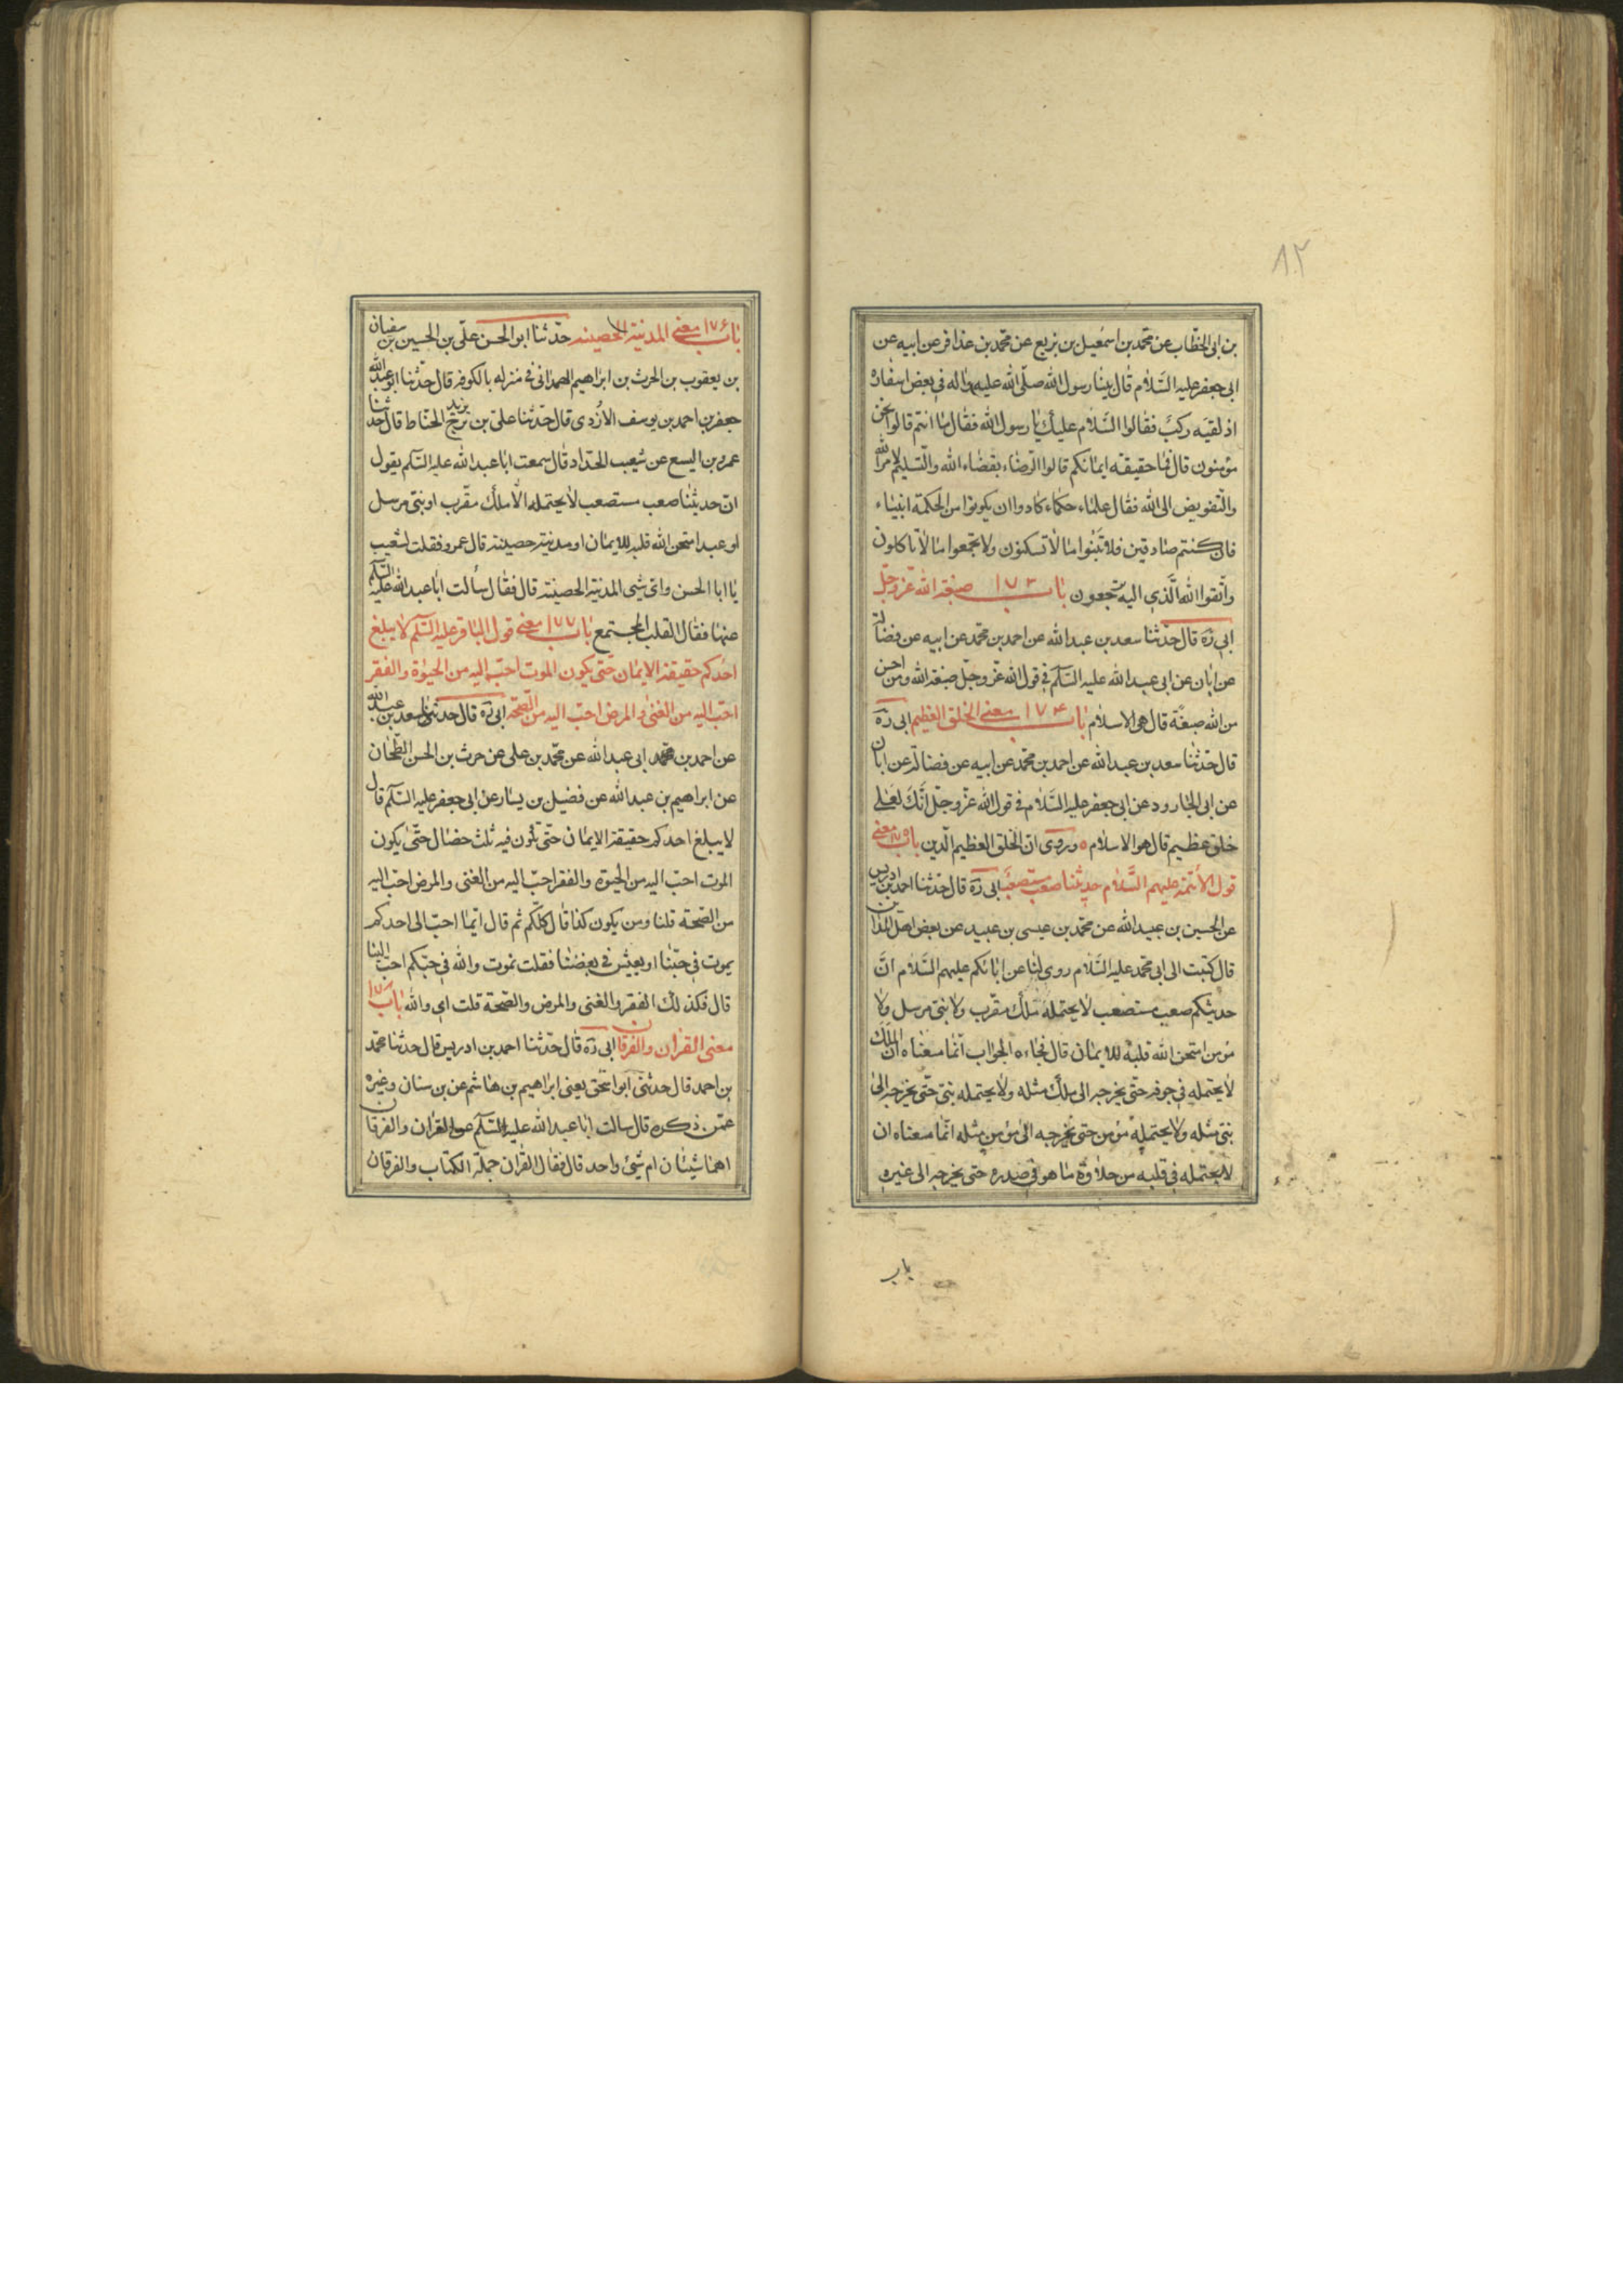 ٨٢
بن ابى الخطاب عن محمد بن اسمعيل بن بزيع عن محمد بن عذافر عن ابيه عن
ابى جعفر عليه السلام قال بينا رسول الله صلى الله عليه واله فى بعض اسفاره
اذ لقيه ركب فقالوا السلام عليك يا رسول الله فقال ما انتم قالوا نحن
مؤمنون قال فما حقيقة ايمانكم قالوا الرضاء بقضاء الله والتسليم لامر الله
والتفويض الى الله فقال علماء حكماء كادوا ان يكونوا من الحكمة انبياء
فان كنتم صادقين فلا تبنوا ما لا تسكنون ولا تجمعوا ما لا تاكلون
واتقوا الله الذى اليه ترجعون باب ١٧٣ صبغة الله عز وجل
ابى ره قال حدثنا سعد بن عبد الله عن احمد بن محمد عن ابيه عن فضالة
عن ابان عن ابى عبد الله عليه السلم فى قول الله عز وجل صبغة الله ومن احسن
من الله صبغة قال هى الاسلام باب ١٧۴ معنى الخلق العظيم ابى ره
قال حدثنا سعد بن عبد الله عن احمد بن محمد عن ابيه عن فضالة عن ابان
عن ابى الجارود عن ابى جعفر عليه السلام فى قول الله عز وجل انك لعلى
خلق عظيم قال هو الاسلام ٥ وروى ان الخلق العظيم الدين باب ١٧٥ معنى
قول الائمة عليهم السلام حديثنا صعب مستصعب ابى ره قال حدثنا احمد بن ادريس
عن الحسين بن عبيد الله عن محمد بن عيسى بن عبيد عن بعض اهل المدائن
قال كتبت الى ابى محمد عليه السلام روى لنا عن ابائكم عليهم السلام ان
حديثكم صعب مستصعب لا يحتمله ملك مقرب ولا نبى مرسل ولا
مؤمن امتحن الله قلبه للايمان قال فجاءه الجواب انما معناه ان الملك
لا يحتمله فى جوفه حتى يخرجه الى ملك مثله ولا يحتمله نبى حتى يخرجه الى
نبى مثله ولا يحتمله مؤمن حتى يخرجه الى مؤمن مثله انما معناه ان
لا يحتمله فى قلبه من حلاوة ما هو فى صدره حتى يخرجه الى غيره
باب
باب ١٧۶ معنى المدينة الحصينة حدثنا ابو الحسن على بن الحسين بن سفيان
بن يعقوب بن الحرث بن ابراهيم الهمدانى فى منزله بالكوفة قال حدثنا ابو عبد الله
جعفر بن احمد بن يوسف الازدى قال حدثنا على بن بزرج الحناط قال حدثنا
عمرو بن اليسع عن شعيب الحداد قال سمعت ابا عبد الله عليه السلم يقول
ان حديثنا صعب مستصعب لا يحتمله الا ملك مقرب او نبى مرسل
او عبد امتحن الله قلبه للايمان او مدينة حصينة قال عمرو فقلت لشعيب
يا ابا الحسن واى شئ المدينة الحصينة قال فقال سألت ابا عبد الله عليه السلم
عنها فقال القلب المجتمع باب ١٧٧ معنى قول الباقر عليه السلم لا يبلغ
احدكم حقيقة الايمان حتى يكون الموت احب اليه من الحيوة والفقر
احب اليه من الغنى والمرض احب اليه من الصحة ابى ره قال حدثنا سعد بن عبد الله
عن احمد بن محمد ابى عبد الله عن محمد بن على عن حرث بن الحسن الطحان
عن ابراهيم بن عبد الله عن فضيل بن يسار عن ابى جعفر عليه السلم قال
لا يبلغ احدكم حقيقة الايمان حتى تكون فيه ثلث خصال حتى يكون
الموت احب اليه من الحيوة والفقر احب اليه من الغنى والمرض احب اليه
من الصحة قلنا ومن يكون كذا قال كلكم ثم قال ايما احب الى احدكم
يموت فى حبنا او يعيش فى بغضنا فقلت نموت والله فى حبكم احب الينا
قال فكذلك الفقر والغنى والمرض والصحة قلت اى والله باب ١٧٨
معنى القران والفرقان ابى ره قال حدثنا احمد بن ادريس قال حدثنا محمد
بن احمد قال حدثنى ابو اسحق يعنى ابراهيم بن هاشم عن بن سنان وغيره
عمن ذكره قال سالت ابا عبد الله عليه السلم عن القران والفرقان
اهما شيئان ام شئ واحد قال فقال القران جملة الكتاب والفرقان